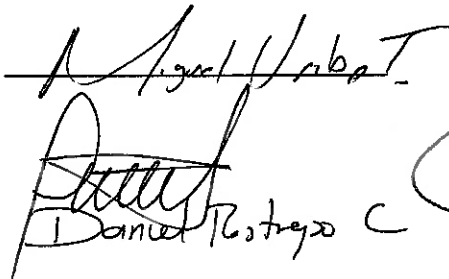 Miguel Uribe T.
Daniel Restrepo C